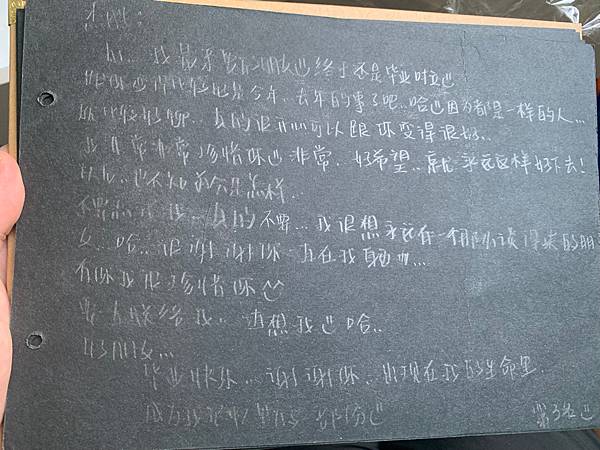 hi... 我最亲爱的朋友 终于还是毕业时刻
跟你变得比较好是今年、去年的事了吧.. 哈 因为都是一样的人...
就比较好聊、真的很开心可以跟你变得很好..
我非常非常珍惜你 非常、好希望.. 就永远这样好下去!
以后.. 也不知道会是怎样..
不要忘了我.. 真的不要... 我很想永远有一个那么谈得来的朋
友... 哈... 很谢谢你一直在我身边...
有你我很珍惜你
要去联络我.. 要想我 哈..
好朋友...
毕业快乐... 谢谢你.. 出现在我的生命里
成为我记忆里的一部份